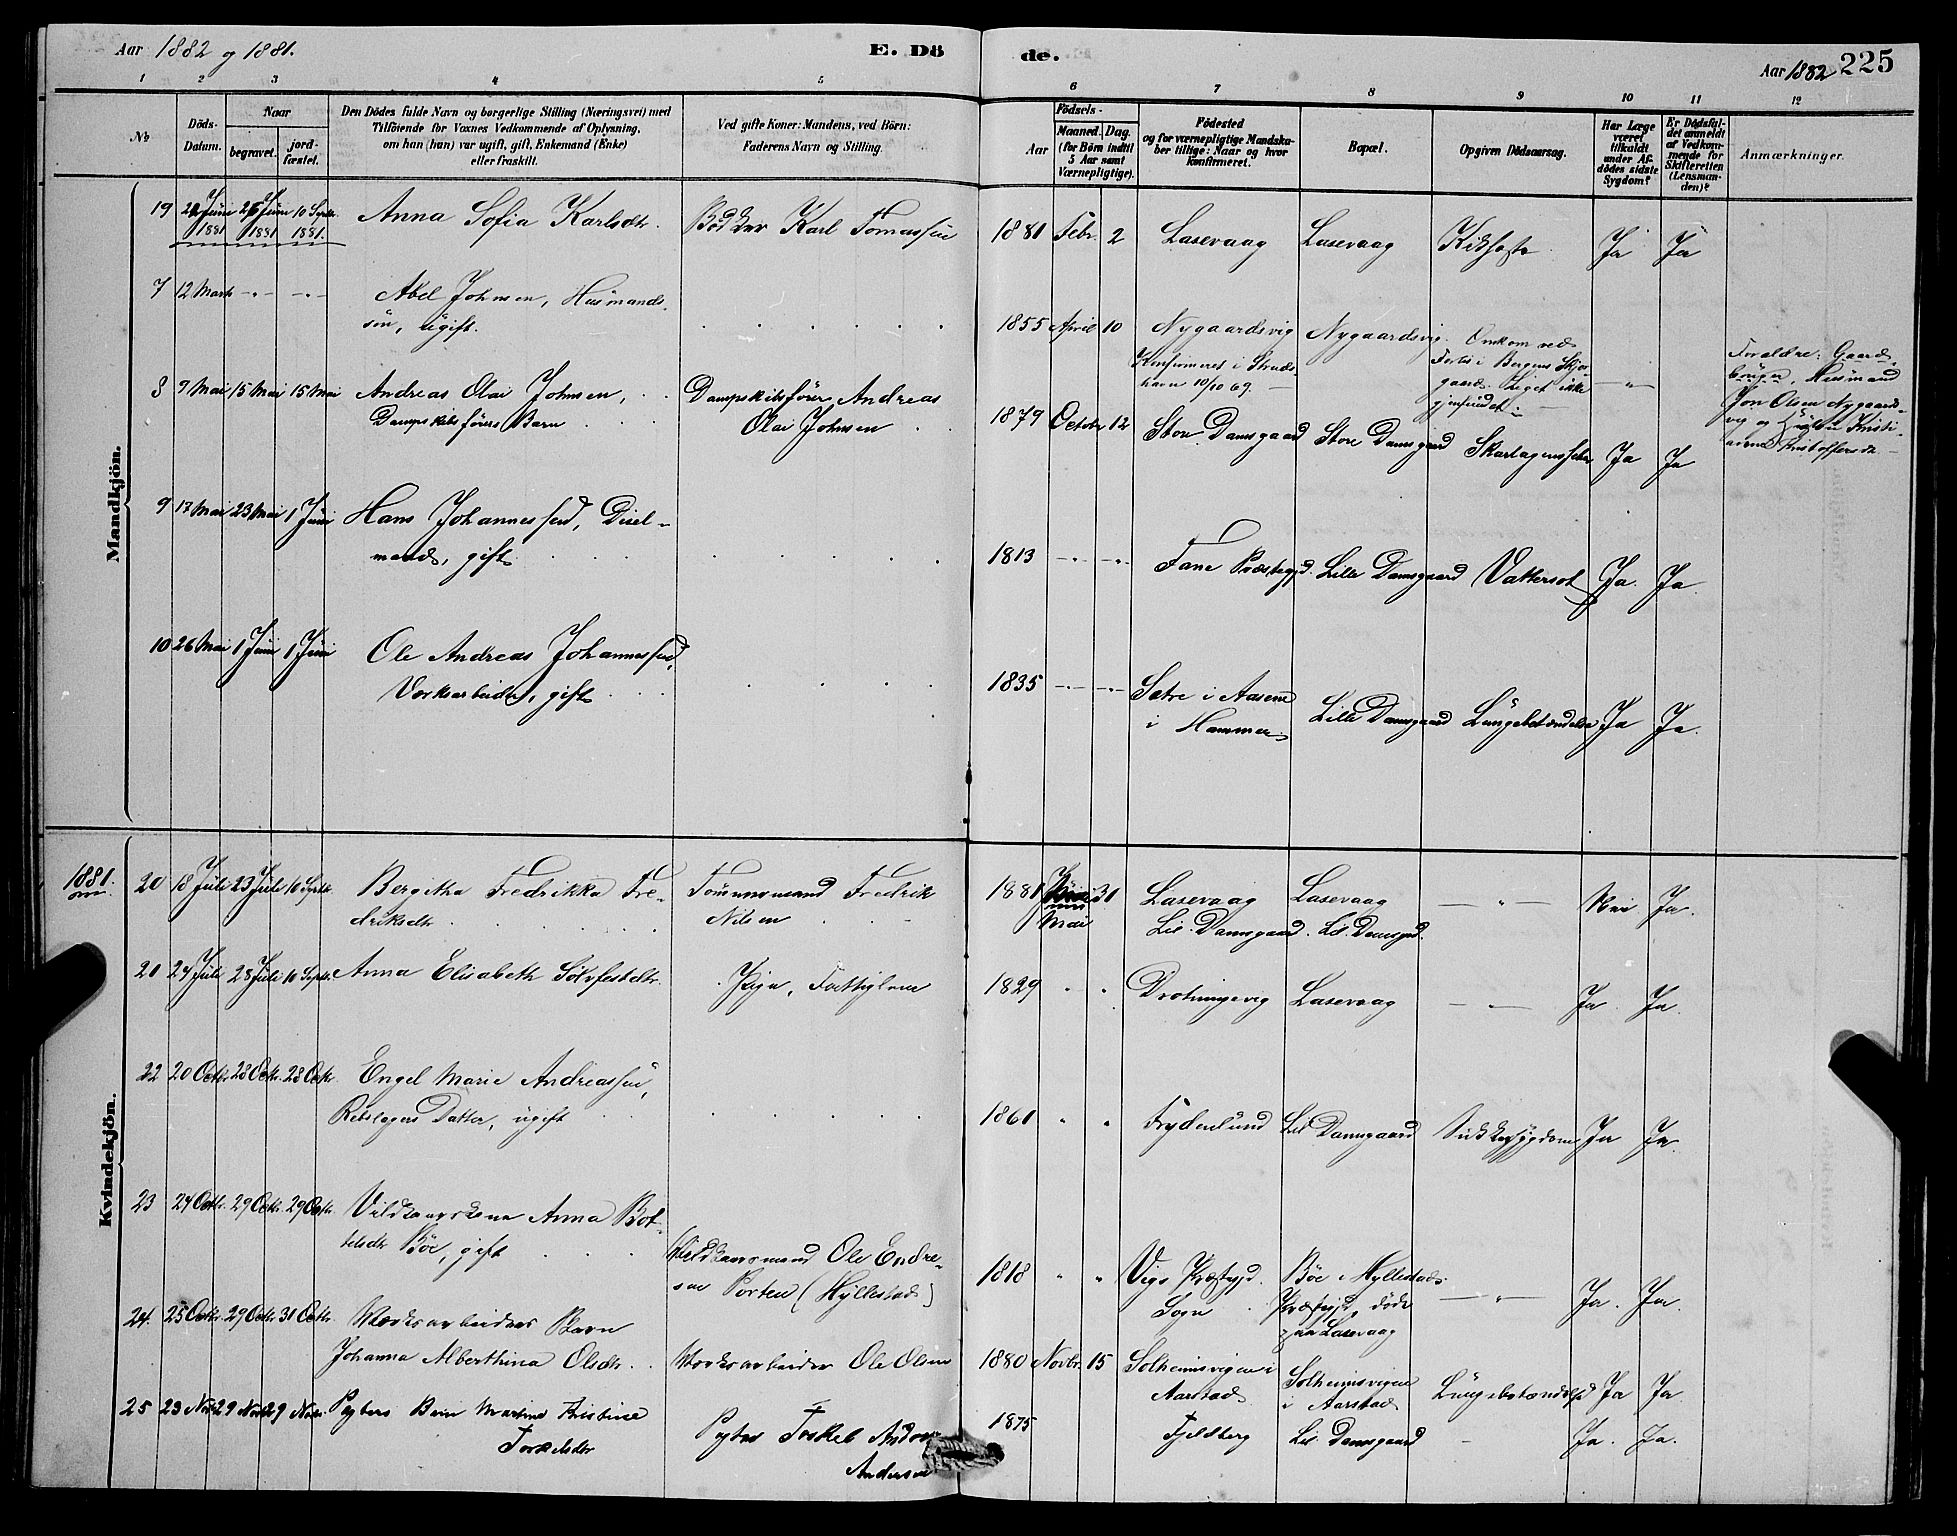 Aar 1882 og 1881.
E. Dö
de.
Aar 1882
225
1 2 3 4 5 6 7 8 9 10 11 12
No
Döds-
Datum.
Naar
begravet.
jord-
fæstet.
Den Dödes fulde Navn og borgerlige Stilling (Næringsvei) med
Tilföiende for Voxnes Vedkommende af Oplysning,
om han (hun) var ugift, gift, Enkemand (Enke)
eller fraskilt.
Ved gifte Koner: Mandens, ved Börn:
Faderens Navn og Stilling.
Aar
Födsels-
Maaned. Dag.
(for Börn indtil
5 Aar samt
Værnepligtige).
Födested
og for værnepligtige Mandska-
ber tillige: Naar og hvor
konfirmeret.
Bopæl.
Opgiven Dödsaarsag.
Har Læge
været
tilkaldt
under Af-
dödes sidste
Sygdom?
Er Dödsfal-
det anmeldt
af Vedkom-
mende for
Skifteretten
(Lensman-
den)?
Anmærkninger.
Mandkjön.
19 Juni 1881 Juni 1881 10 Septr. 1881. Anna Sofia Karlsdtr. Bödker Karl Tomassen 1881 Febr. 2 Laxevaag Laxevaag Kikhoste Ja Ja
7 12 Marts -"- -"- Abel Johnsen, Husmands-
sön, ugift. 1855 April 10 Nygaardsvig Nygaardsvig Omkom ved
Konfirmeret i Struds-
havn 10/10 69.
i Bergens Skjær-
gaard. Liget ikke
gjenfundet. -"-
Forældre: Gaard-
bruger, Husmand
Jon Olsen Nygaards-
vig og Hustru Kristi-
8 9 Mai 15 Mai 15 Mai Andreas Olai Johnsen,
Dampskibsförers Barn
Dampskibsförer Andreas
Olai Johnsen
1879 October 12 Store Damsgaard Store Damsgaard Skarlagensfeber Ja Ja
9 13 Mai 23 Mai 1 Juni Hans Johannessen,
mand, gift 1813 -"- -"- Fane Præstegjd. Lille Damsgaard Vattersot Ja. Ja
10 26 Mai 1 Juni 1 Juni Ole Andreas Johannessen,
Værksarbeider, gift
1835 -"- -"- Sætre i Aasene
i Hammer Lille Damsgaard Lungebetændelse Ja Ja.
Kvindekjön.
1881.
20 18 Juli 23 Juli 10 Septr. Bergitha Fredrikka Fre-
driksdtr. Tömmermand Fredrik
Nilsen
1881 Mai 31 Laxevaag Laxevaag -"- Nei Ja.
Lil. Damsgaard. Lil. Damsgrd.
21 24 Juli 28 Juli 10 Septr. Anna Elisabeth Sölvfestdtr. Pige, Fattiglem 1829 " " Drotningevig Laxevaag -"- Ja. Ja.
22 20 Octbr. 28 Octr. 28 Octr. Engel Marie Andreassen,
Rebslagers Datter, ugift
1861 " " Frydenlund Lil Damsgaard Ja Ja
23 24 Octbr. 29 Octbr. 29 Octbr. Anna Bot-
telsdtr Böe, gift Ole Endre-
sen Porten (Hyllestad)
1818 " " Vigs Præstgjd. Böe i Hyllestads
Sogn Præstgjd, döde
paa Laxevaag -"- Ja. Ja.
24. 25 Octbr. 29 Octbr 31 Octbr. Værksarbeiders Barn
Johanna Alberthina Olsdtr. Værksarbeider Ole Olsen 1880 Novbr. 15 Solheimsvigen i
Aarstad Solheimsvigen
i Aarstad Lungebetændelse Ja Ja.
25 23 Nov 29 Nov 29 Novbr. Barn Martine Kristine
Torkelsdtr Torkel
Andersen
1875 Fjeldberg Lil. Damsgaard - Ja. Ja.